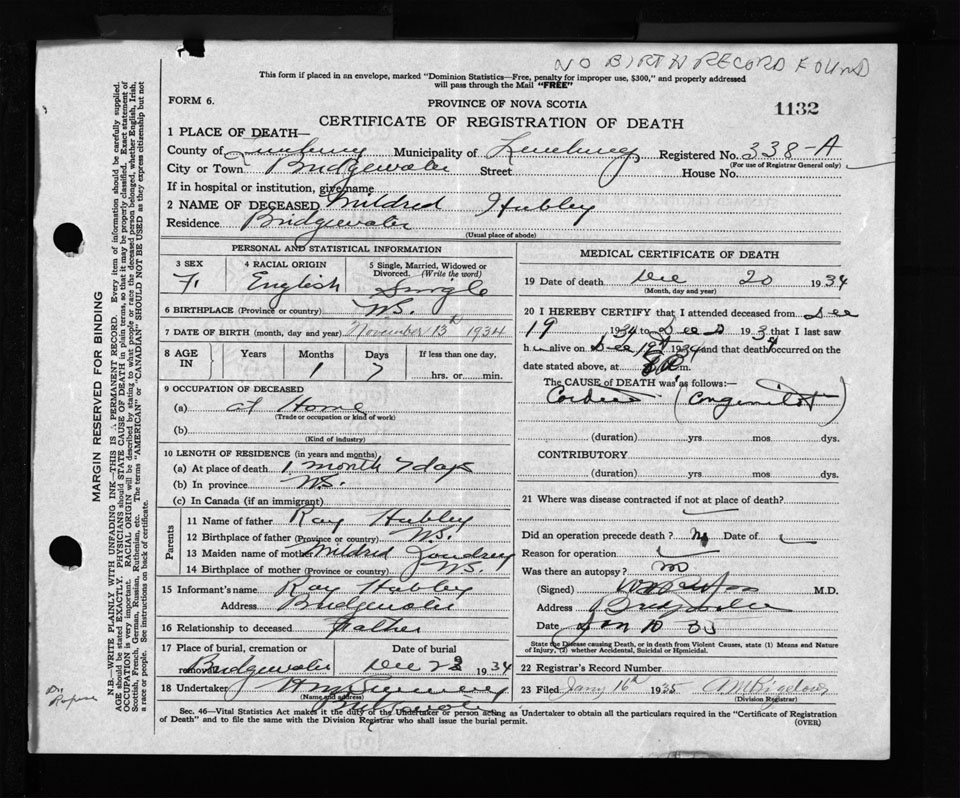 NO BIRTH RECORD FOUND
This form if placed in an envelope, marked "Dominion Statistics—Free, penalty for improper use, $300," and properly addressed
will pass through the Mail "FREE"
FORM 6.
PROVINCE OF NOVA SCOTIA
1132
CERTIFICATE OF REGISTRATION OF DEATH
1 PLACE OF DEATH—
County of Lunenburg Municipality of Lunenburg Registered No. 338-A
(For use of Registrar General only)
City or Town Bridgewater Street House No.
If in hospital or institution, give name
2 NAME OF DECEASED Mildred Hubley
Residence Bridgewater
(Usual place of abode)
PERSONAL AND STATISTICAL INFORMATION
3 SEX 4 RACIAL ORIGIN 5 Single, Married, Widowed or
Divorced. (Write the word)
F. English Single
6 BIRTHPLACE (Province or country) N.S.
7 DATE OF BIRTH (month, day and year) November 13th 1934
8 AGE IN Years Months Days If less than one day,
1 7 hrs. or min.
9 OCCUPATION OF DECEASED
(a) at Home
(Trade or occupation or kind of work)
(b)
(Kind of industry)
10 LENGTH OF RESIDENCE (in years and months)
(a) At place of death 1 month 7 days
(b) In province N.S.
(c) In Canada (if an immigrant)
Parents
11 Name of father Ray Hubley
12 Birthplace of father (Province or country) N.S.
13 Maiden name of mother Mildred
14 Birthplace of mother (Province or country) N.S.
15 Informant's name Ray Hubley
Address Bridgewater
16 Relationship to deceased Father
17 Place of burial, cremation or Date of burial
removal Bridgewater Dec 1934
18 Undertaker
(Name and address)
Bridgewater
MEDICAL CERTIFICATE OF DEATH
19 Date of death Dec 20 1934
(Month, day and year)
20 I HEREBY CERTIFY that I attended deceased from Dec
19 1934 to Dec 193 that I last saw
h alive on Dec 19th 1934 and that death occurred on the
date stated above, at m.
The CAUSE OF DEATH was as follows:—
(Congenital)
(duration) yrs. mos. dys.
CONTRIBUTORY
(duration) yrs. mos. dys.
21 Where was disease contracted if not at place of death?
Did an operation precede death? No Date of
Reason for operation
Was there an autopsy? no
(Signed) M.D.
Address Bridgewater
Date Jan
State the Disease causing Death, or in death from Violent Causes, state (1) Means and Nature
of Injury, (2) whether Accidental, Suicidal or Homicidal.
22 Registrar's Record Number
23 Filed Jany 16th 1935
(Division Registrar)
Sec. 46—Vital Statistics Act makes it the duty of the Undertaker or person acting as Undertaker to obtain all the particulars required in the "Certificate of Registration
of Death" and to file the same with the Division Registrar who shall issue the burial permit.
(OVER)
MARGIN RESERVED FOR BINDING
N.B.—WRITE PLAINLY WITH UNFADING INK—THIS IS A PERMANENT RECORD. Every item of information should be carefully supplied.
AGE should be stated EXACTLY. PHYSICIANS should STATE CAUSE OF DEATH in plain terms, so that it may be properly classified. Exact statement of
OCCUPATION is very important. RACIAL ORIGIN will be described by stating to what people or race the deceased person belonged, whether English, Irish,
Scottish, French, German, Russian, Ruthenian, etc. The terms "AMERICAN" or "CANADIAN" SHOULD NOT BE USED as they express citizenship but not
a race or people. See instructions on back of certificate.